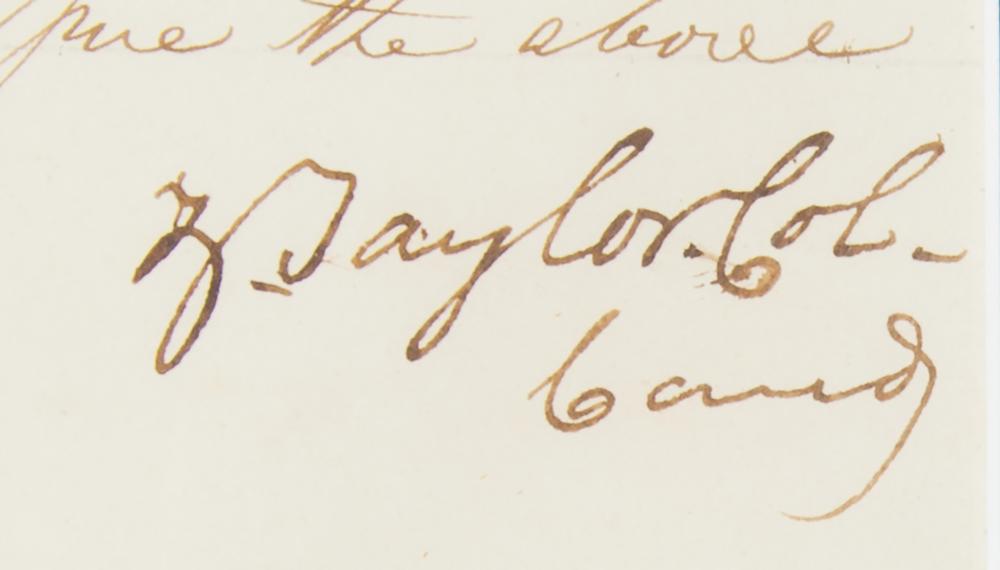 the above
Z. Taylor. Col.
Comd